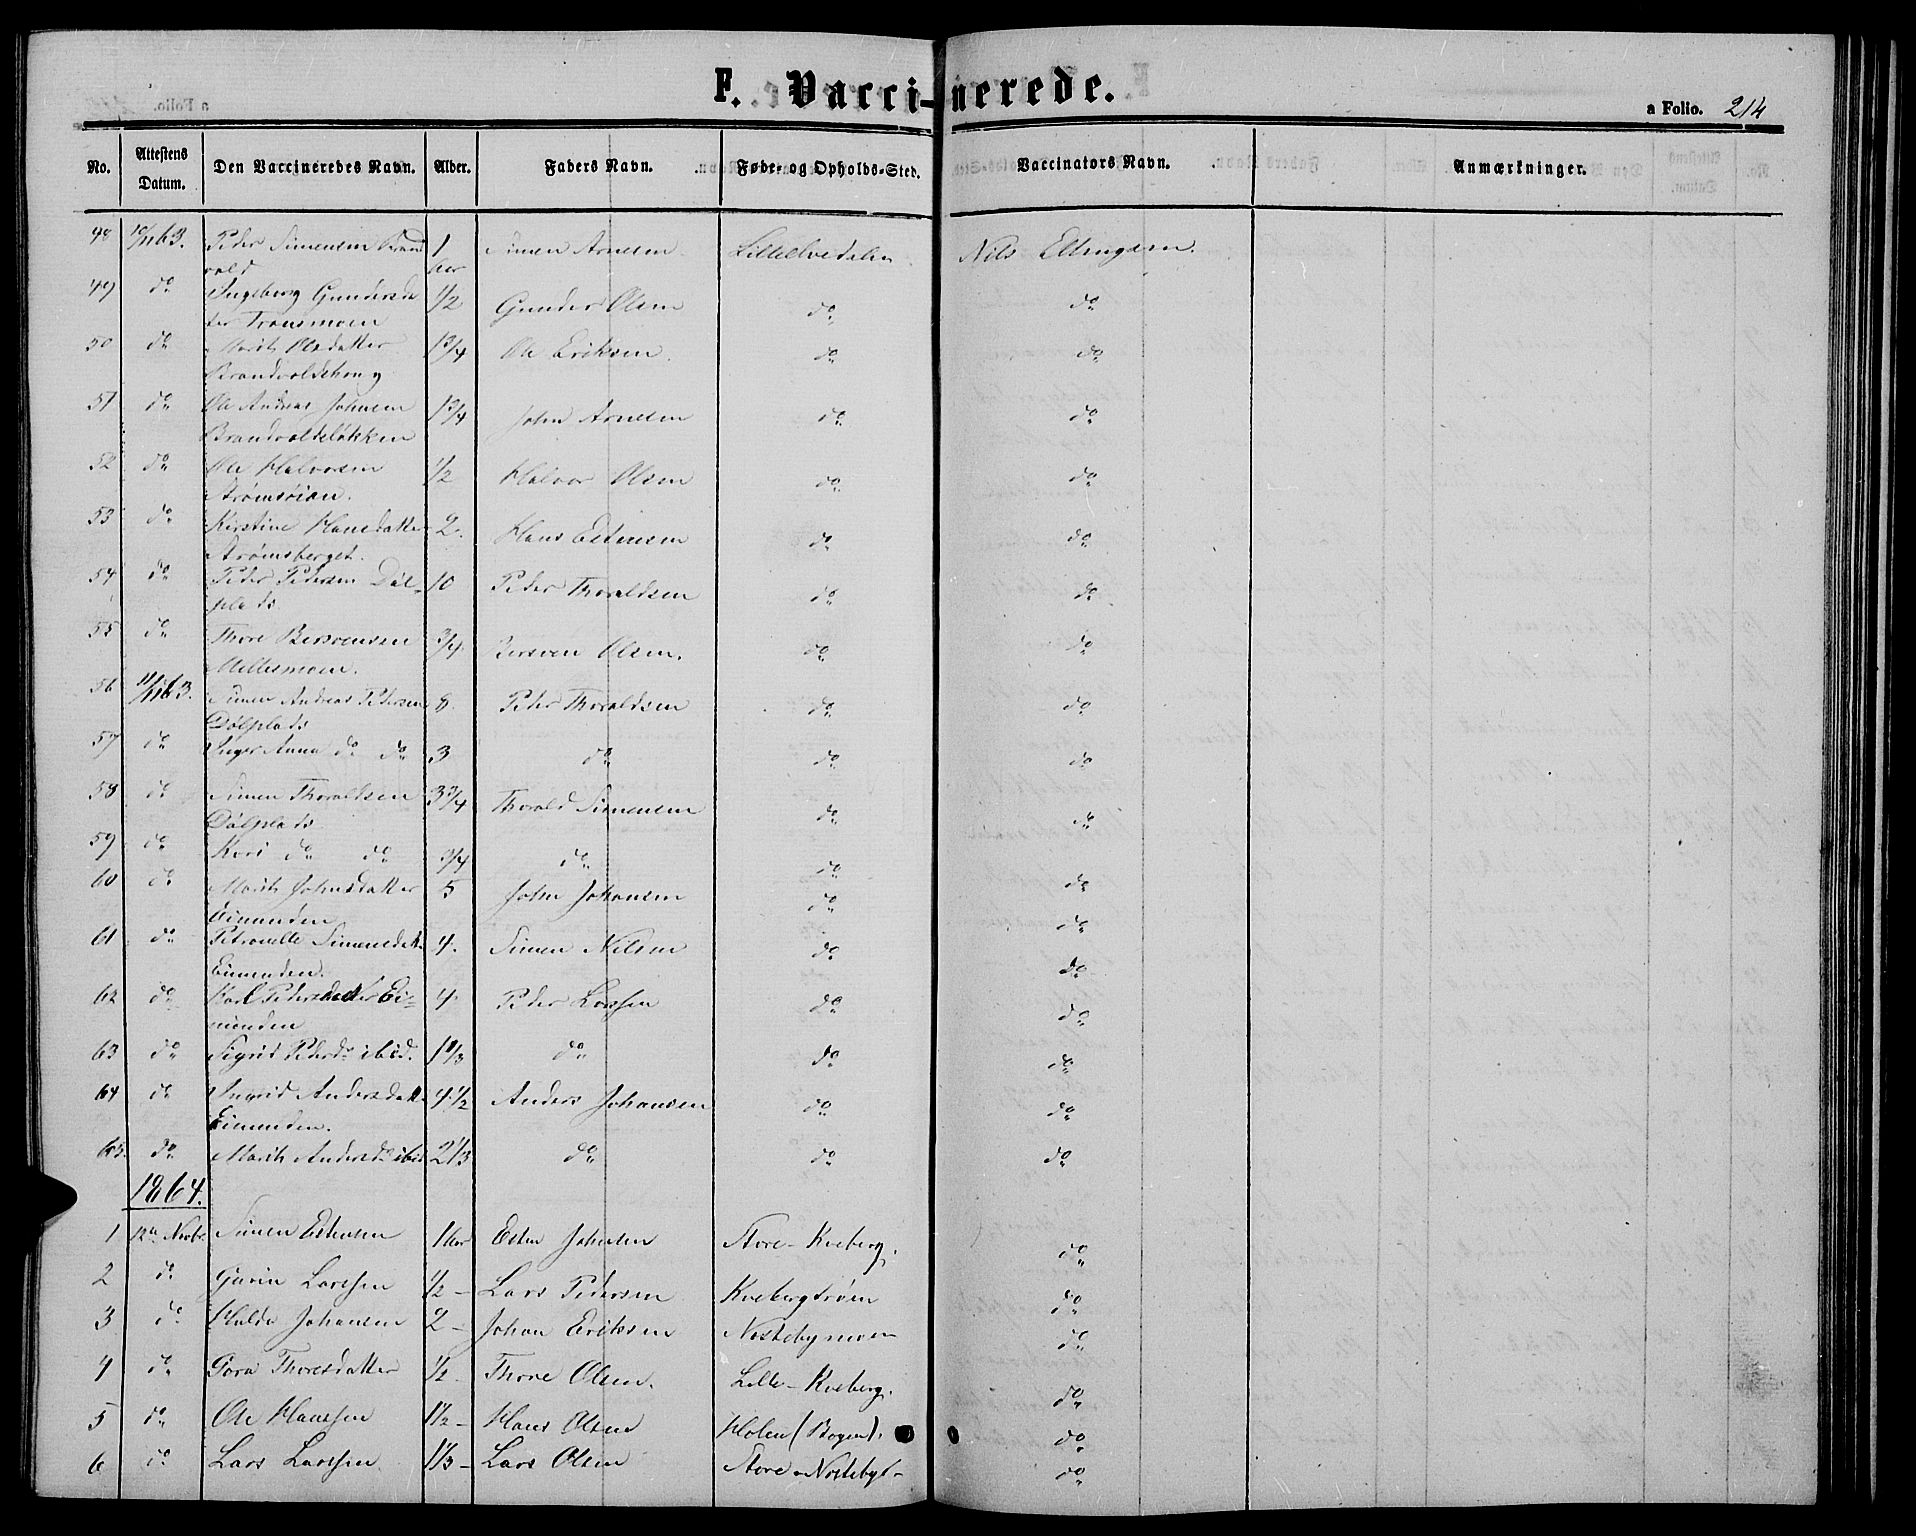 F. Vaccinerede.
a Folio. 214
No. Attestens Datum. Den Vaccineredes Navn. Alder. Faders Navn. Føde- og Opholds-Sted. Vaccinators Navn. Anmærkninger.
48 10/1163. Peder Simensen Brand 1 Simen Arnesen Lilleelvedalen Nils Ellingsen.
vold aar
49 do Ingeborg Gundersda 1/2 Gunder Olsen do do
ter Tronsmoen
50 do Marit Olsdatter 1 3/4 Ole Eriksen. do do
Brandvoldshaug
51 do Ole Andreas Johnsen 1 3/4 John Arnesen do do
Brandvoldsløkken
52 do Ole Halvorsen 1/2 Halvor Olsen do do
Strømsøien.
53 do Kirstine Hansdatter 2. Hans Estensen do do
Strømsberget.
54 do Peder Pedersen Døl- 10 Peder Thoraldsen do do
plads
55 do Thore Bersvensen 3/4 Bersven Olsen. do do
Millesmoen.
56 11/1163. Simen Andreas Pedersen 8 Peder Thoraldsen do do
Dølplads
57 do Inger Anna do do 3 do do do
58 do Simen Thoraldsen 3 3/4 Thorald Simensen do do
Dølplads
59 do Kari do do 3/4 do do
60 do Marit Johnsdatter 5 John Johansen do do
Eimunden
61 do Petronelle Simensdat. 4. Simen Nilsen do do
Eimunden.
62 do Kari Pedersdatter Ei- 4 Peder Larssen do do
munden
63 do Sigrid Pedersd. ibid. 1 1/3 do do do
64 do Ingrid Andersdatt. 4 1/2 Anders Johansen do do
Eimunden.
65. do Marit Andersd. ibid 2 1/3 do do do
1864.
1 12te Novbr. Simen Estensen 1 aar Esten Johnsen Store-Kveberg. do
2 do Gurin Larssen 1/2 - Lars Pedersen Kvebergtrøen do
3 do Haldo Johansen 2 - Johan Eriksen Nestebymoen do
4 do Gora Thoresdatter 1/2. Thore Olsen. Lille-Kveberg. do
5 do Ole Hanssen 1 1/2 - Hans Olsen Holen (Bogen). do
6 do Lars Larssen 1 1/3 - Lars Olsen Store-Nesteby do